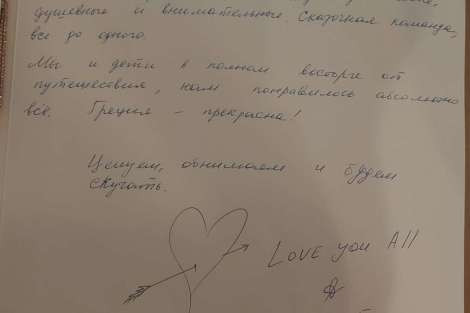 душевного и внимательные. Сказочная команда,
все до одного.
Мы и дети в полном восторге от
путешествия, нам понравилось абсолютно
всё. Греция - прекрасна!
Целуем, обнимаем и будем
скучать.
LOVE YOU All